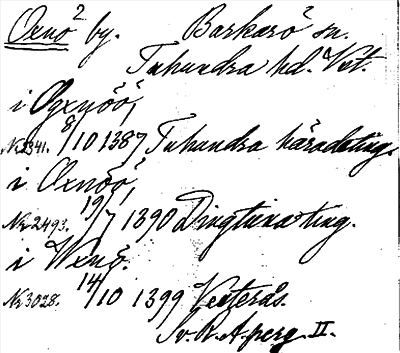 Oxnö² by. Barkarö² sn.
Tuhundra hd. Vst.
i Ogxnöö²,
Nr 2341. 8/10 1387 Tuhundra häradsting.
i Oxnöö²,
Nr 2493. 19/7 1390 Dingtuna ting.
i Wxnö.
Nr 3028. 14/10 1399 Västerås.
Sv. R. A. perg. II.